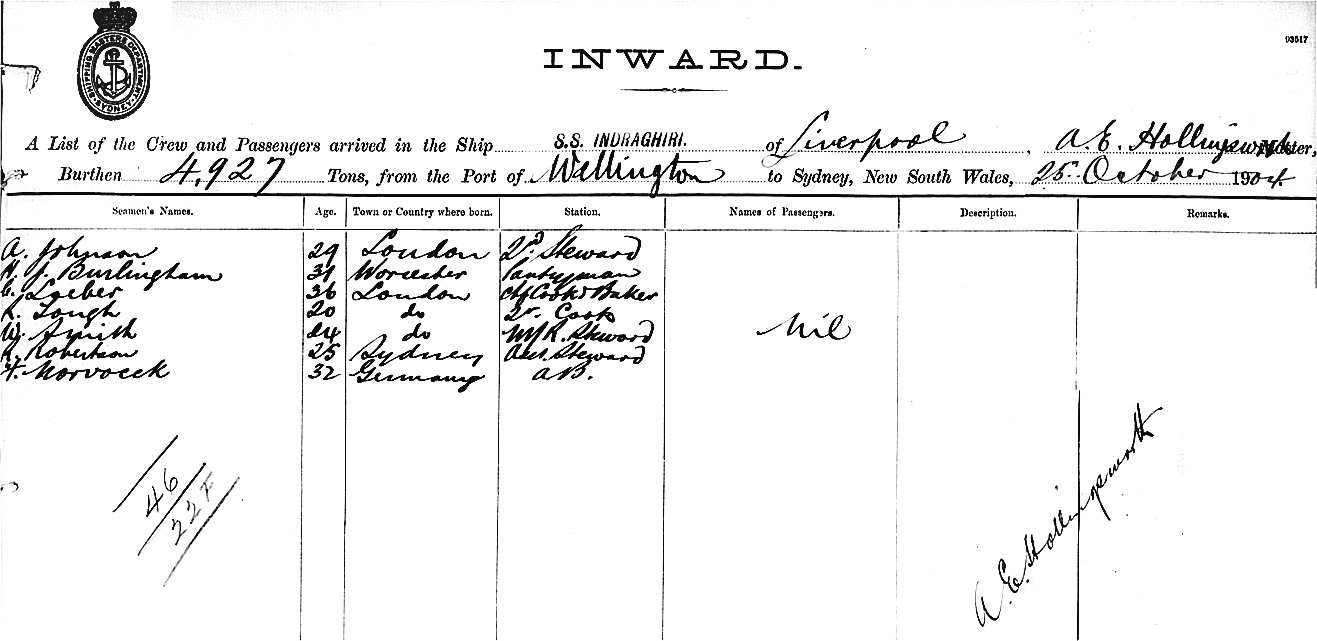 SHIPPING MASTERS DEPARTMENT SYDNEY
93517
INWARD.
A List of the Crew and Passengers arrived in the Ship S.S. INDRAGHIRI. of Liverpool, A. E. Hollingsworth Master,
Burthen 4,927 Tons, from the Port of Wellington to Sydney, New South Wales, 25 October 1904
Seamen's Names. Age. Town or Country where born. Station. Names of Passengers. Description. Remarks.
A. Johnson 29 London 2d Steward
H. J. Burlingham 31 Worcester Pantryman
C. Loeber 36 London Chf Cook & Baker
Lough 20 do 2r. Cook
W. Smith 24 do M/R. Steward
Robertson 25 Sydney Asst. Steward
Nil
32 Germany AB.
46
22
A. E. Hollingsworth